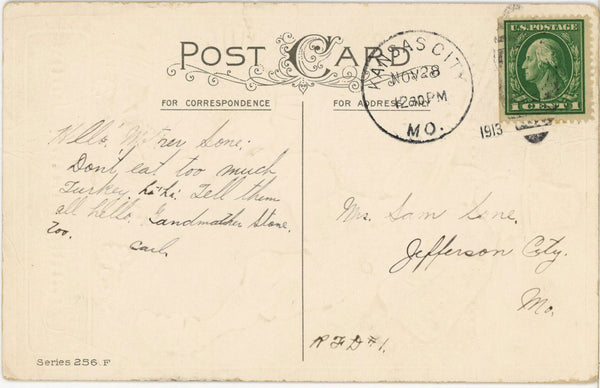 POST CARD
FOR CORRESPONDENCE
FOR ADDRESS ONLY
KANSAS CITY
NOV 28
12:30 PM
MO.
1913
U.S. POSTAGE
1 CENT 1
Hello, Mother Sone:
Don't eat too much
Turkey, ha-ha. Tell them
all hello. Grandmother Stone.
Too.
Carl.
Mrs. Sam Sone.
Jefferson City.
Mo.
RFD #1.
Series 256. F